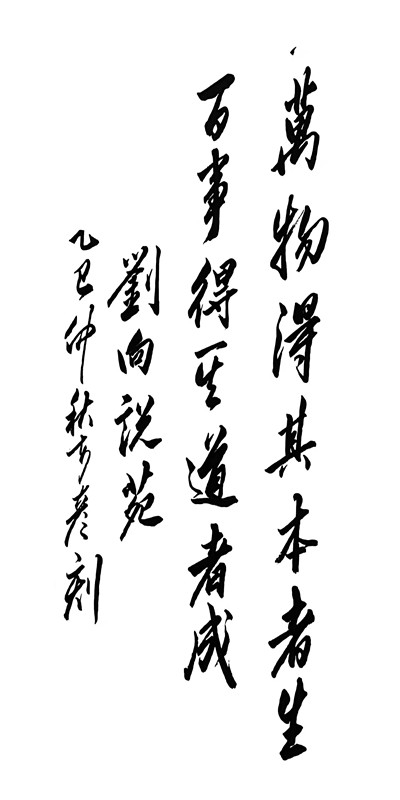 萬物得其本者生
百事得其道者成
劉向說苑
乙巳仲秋方彦刻